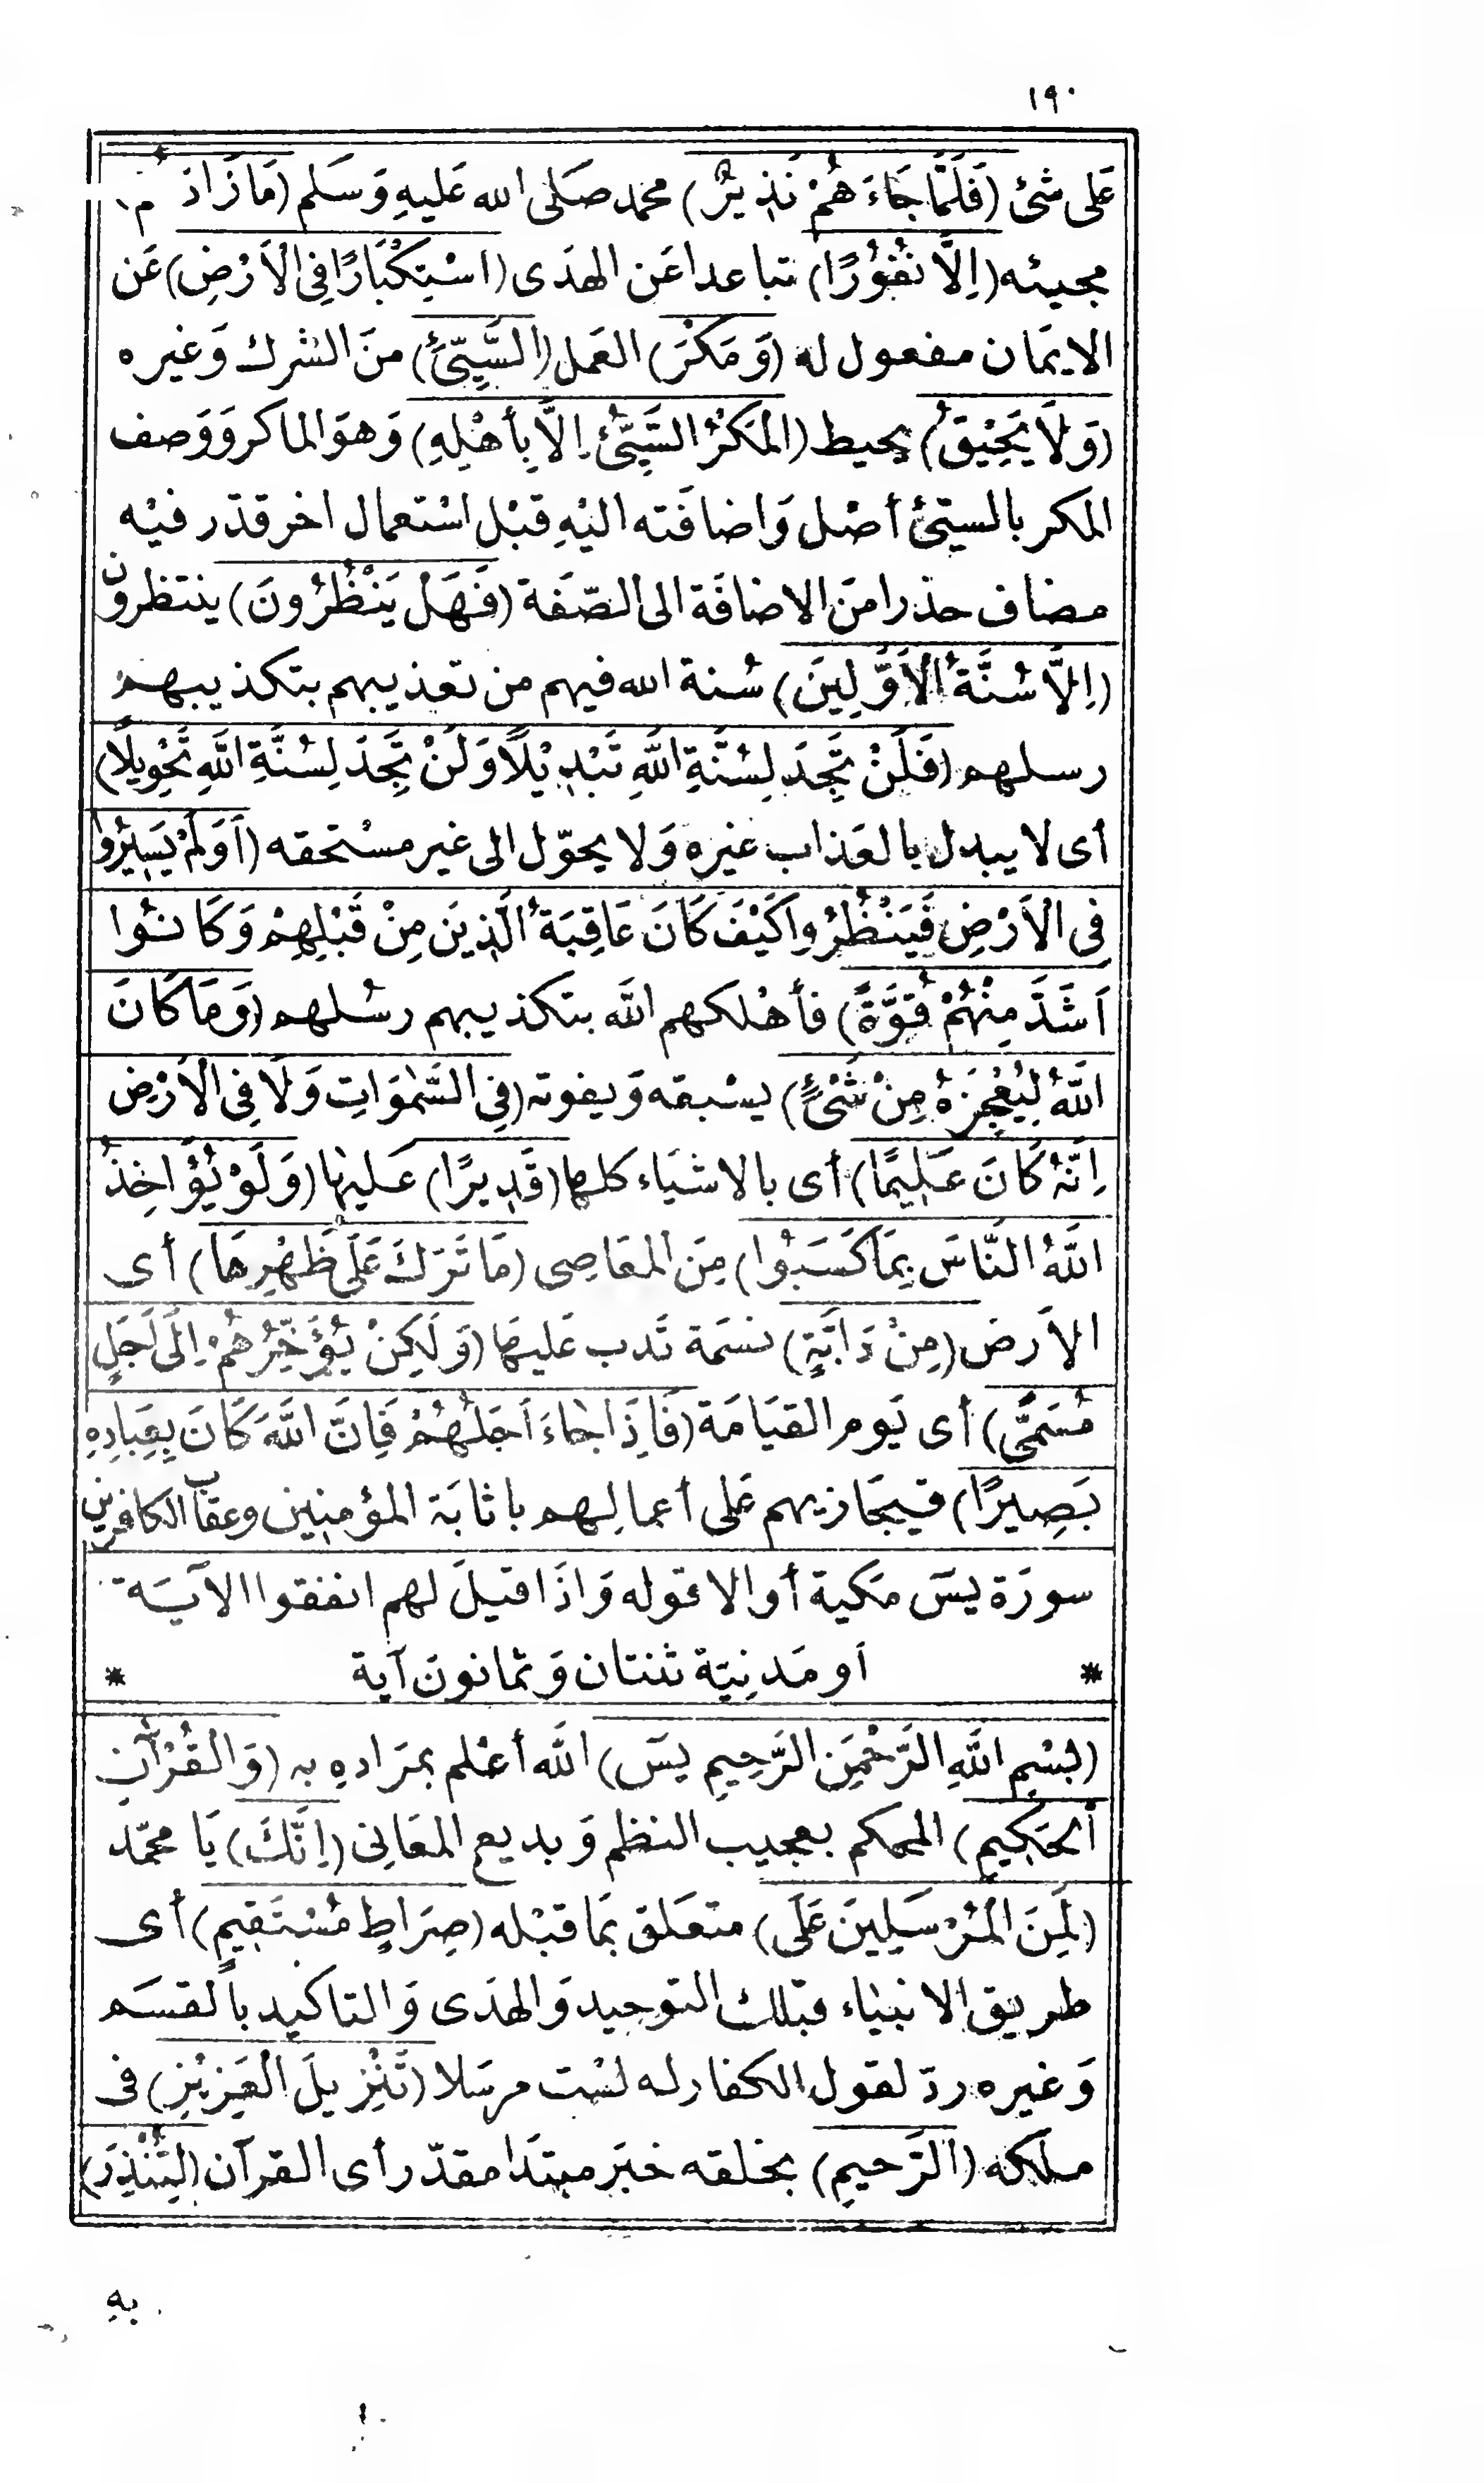 ١٩٠
عَلى شئ (فَلَمَّا جَاءَ هُمْ نَذِيرٌ) محمد صَلى الله عَليهِ وَسَلم (مَا زَادَ هُم)
مجيئه (اِلَّا نُفُوْرًا) تباعدا عَن الهدَى (اسْتِكْبَارًا فِى الْاَرْضِ) عَن
الايمَان مفعول له (وَمَكْرَ) العَمل (السَّيِّئِ) منَ الشرك وَغيره
(وَلَا يَحِيْقُ) يحيط (الْمَكْرُ السَّيِّئُ اِلَّا بِأَهْلِهِ) وَهوَ الماكر وَوَصف
المكر بالسيّئ أصْل وَاضافَته اليْهِ قبْل اسْتعمال اخر قدّر فيْه
مضاف حذرا منَ الاضافَة الى الصّفَة (فَهَلْ يَنْظُرُونَ) ينتظرون
(اِلَّا سُنَّةُ الْاَوَّلِينَ) سُنة الله فيهم من تعذيبهم بتكذيبهم
رسلهم (فَلَنْ تَجِدَ لِسُنَّةِ اللَّهِ تَبْدِيْلًا وَلَنْ تَجِدَ لِسُنَّةِ اللَّهِ تَحْوِيلًا)
أى لا يبدل بالعَذاب غيره وَلا يحوّل الى غير مسْتحقه (اَوَلَمْ يَسِيْرُوا
فِى الْاَرْضِ فَيَنْظُرُوا كَيْفَ كَانَ عَاقِبَةُ الَّذِينَ مِنْ قَبْلِهِمْ وَكَانُوا
اَشَدَّ مِنْهُمْ قُوَّةً) فأهْلكهم اللَّه بتكذيبهم رسُلهم (وَمَا كَانَ
اللَّهُ لِيُعْجِزَهُ مِنْ شَىْءٍ) يسْبقه وَيفوته (فِى السَّمٰوَاتِ وَلَا فِى الْاَرْضِ
اِنَّهُ كَانَ عَلِيمًا) أى بالاشيَاء كلها (قَدِيرًا) عَليها (وَلَوْ يُؤَاخِذُ
اللَّهُ النَّاسَ بِمَا كَسَبُوا) مِنَ المعَاصِى (مَا تَرَكَ عَلَى ظَهْرِهَا) أى
الأرض (مِنْ دَابَّةٍ) نسَمَة تَدب عَليهَا (وَلَكِنْ يُؤَخِّرُهُمْ اِلَى اَجَلٍ
مُسَمًّى) أى يَوم القيَامَة (فَاِذَا جَاءَ اَجَلُهُمْ فَاِنَّ اللَّهَ كَانَ بِعِبَادِهِ
بَصِيرًا) فيجَازيهم عَلى أعمالهم باثابَة المؤمنِين وعقاب الكافرين
سورَة يسَ مَكية أو الا قوله وَاذَا قيلَ لهم انفقوا الآيَة
* اَو مَدنِيّة ثنتان وَثمانونَ آية *
(بِسْمِ اللَّهِ الرَّحْمَنِ الرَّحِيمِ يسَ) اللَّه أعْلم بمرَادهِ به (وَالْقُرْآنِ
الْحَكِيمِ) المحكم بعجيب النظم وَبديع المعَانِى (اِنَّكَ) يَا محمّد
(لَمِنَ الْمُرْسَلِينَ عَلَى) متعَلق بمَا قبْله (صِرَاطٍ مُسْتَقِيمٍ) أى
طريق الانبيَاء قبلك التوحيد وَالهدَى وَالتاكيد بالقسَم
وَغيره ردّ لقول الكفار له لسْت مرسَلا (تَنْزِيلَ الْعَزِيْزِ) فى
ملكه (الرَّحيمِ) بخلقه خبَر مبتَدا مقدّر أى القرآن (لِتُنْذِرَ)
بِهِ